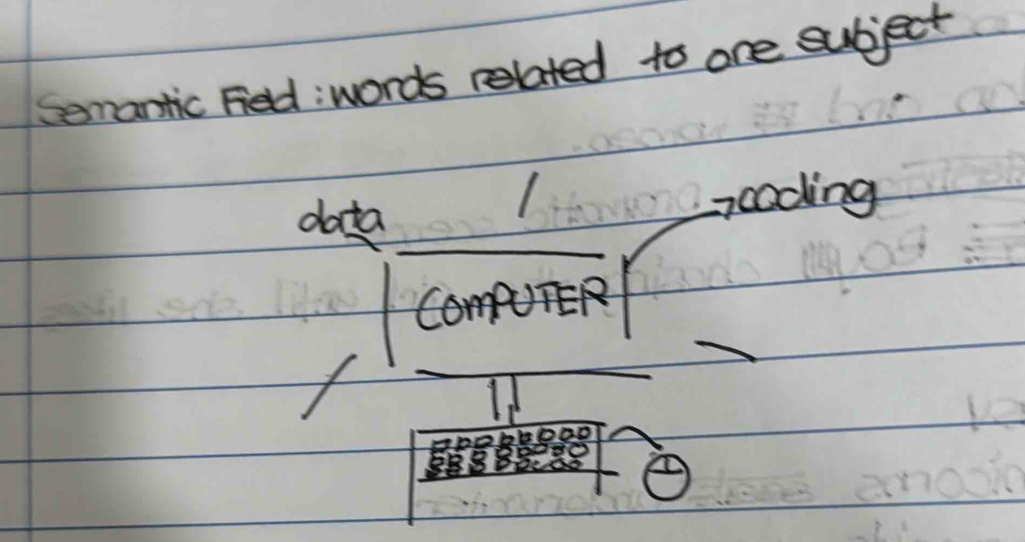 Semantic Field: words related to one subject
data
coding
COMPUTER